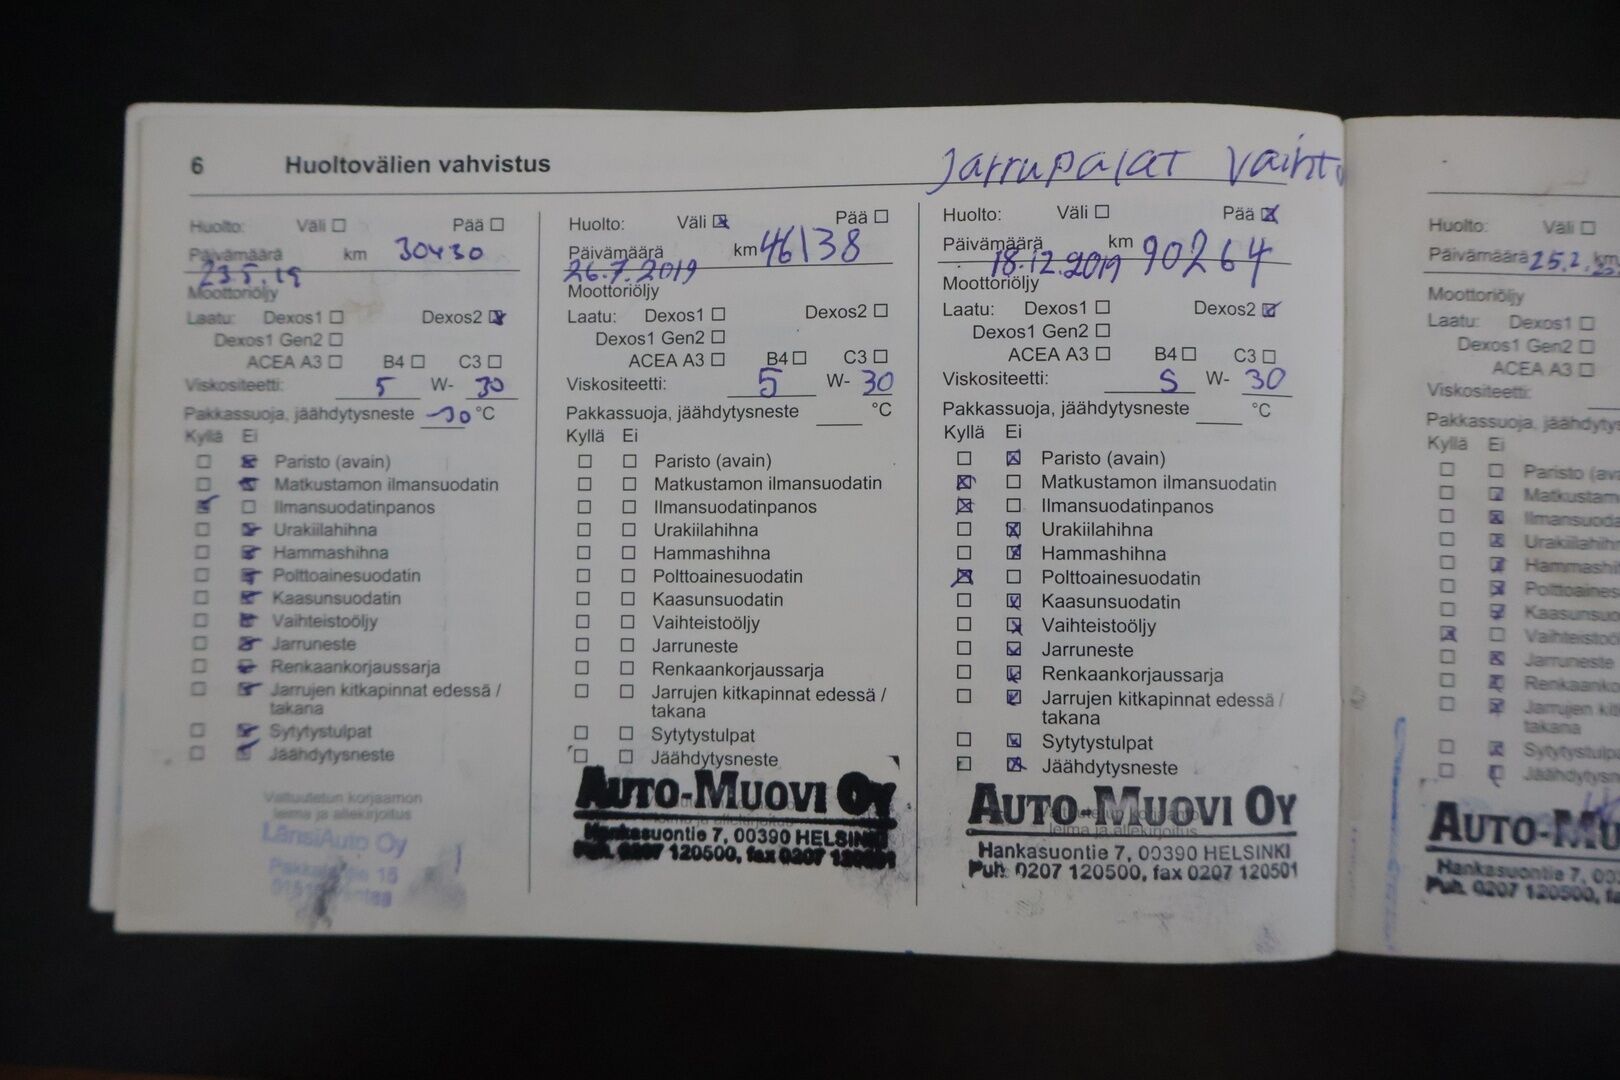 6 Huoltovälien vahvistus
Jarrupalat vaihto
Huolto: Väli ☐ Pää ☐
Päivämäärä km 30430
23.5.19
Moottoriöljy
Laatu: Dexos1 ☐ Dexos2 ☒
Dexos1 Gen2 ☐
ACEA A3 ☐ B4 ☐ C3 ☐
Viskositeetti: 5 W- 30
Pakkassuoja, jäähdytysneste -30 °C
Kyllä Ei
☐ ☒ Paristo (avain)
☐ ☒ Matkustamon ilmansuodatin
☒ ☐ Ilmansuodatinpanos
☐ ☒ Urakiilahihna
☐ ☒ Hammashihna
☐ ☒ Polttoainesuodatin
☐ ☒ Kaasunsuodatin
☐ ☒ Vaihteistoöljy
☐ ☒ Jarruneste
☐ ☒ Renkaankorjaussarja
☐ ☒ Jarrujen kitkapinnat edessä /
takana
☐ ☒ Sytytystulpat
☐ ☒ Jäähdytysneste
Valtuutetun korjaamon
leima ja allekirjoitus
LänsiAuto Oy
15
Huolto: Väli ☒ Pää ☐
Päivämäärä km 46138
26.7.2019
Moottoriöljy
Laatu: Dexos1 ☐ Dexos2 ☐
Dexos1 Gen2 ☐
ACEA A3 ☐ B4 ☐ C3 ☐
Viskositeetti: 5 W- 30
Pakkassuoja, jäähdytysneste °C
Kyllä Ei
☐ ☐ Paristo (avain)
☐ ☐ Matkustamon ilmansuodatin
☐ ☐ Ilmansuodatinpanos
☐ ☐ Urakiilahihna
☐ ☐ Hammashihna
☐ ☐ Polttoainesuodatin
☐ ☐ Kaasunsuodatin
☐ ☐ Vaihteistoöljy
☐ ☐ Jarruneste
☐ ☐ Renkaankorjaussarja
☐ ☐ Jarrujen kitkapinnat edessä /
takana
☐ ☐ Sytytystulpat
☐ ☐ Jäähdytysneste
AUTO-MUOVI OY
Hankasuontie 7, 00390 HELSINKI
Puh. 0207 120500, fax 0207 120501
Huolto: Väli ☐ Pää ☒
Päivämäärä km 90264
18.12.2019
Moottoriöljy
Laatu: Dexos1 ☐ Dexos2 ☒
Dexos1 Gen2 ☐
ACEA A3 ☐ B4 ☐ C3 ☐
Viskositeetti: 5 W- 30
Pakkassuoja, jäähdytysneste °C
Kyllä Ei
☐ ☒ Paristo (avain)
☒ ☐ Matkustamon ilmansuodatin
☒ ☐ Ilmansuodatinpanos
☐ ☒ Urakiilahihna
☐ ☒ Hammashihna
☒ ☐ Polttoainesuodatin
☐ ☒ Kaasunsuodatin
☐ ☒ Vaihteistoöljy
☐ ☒ Jarruneste
☐ ☒ Renkaankorjaussarja
☐ ☒ Jarrujen kitkapinnat edessä /
takana
☐ ☒ Sytytystulpat
☐ ☒ Jäähdytysneste
leima ja allekirjoitus
AUTO-MUOVI OY
Hankasuontie 7, 00390 HELSINKI
Puh. 0207 120500, fax 0207 120501
Huolto: Väli ☐
Päivämäärä 25.2. km
Moottoriöljy
Laatu: Dexos1 ☐
Dexos1 Gen2 ☐
ACEA A3 ☐
Viskositeetti:
Pakkassuoja, jäähdytys
Kyllä Ei
☐ ☐ Paristo (ava
☐ ☒ Matkustam
☐ ☒ Ilmansuoda
☐ ☒ Urakiilahihn
☐ ☒ Hammashih
☐ ☒ Polttoaines
☐ ☒ Kaasunsuo
☒ ☐ Vaihteistoö
☐ ☒ Jarruneste
☐ ☒ Renkaanko
☐ ☒ Jarrujen kit
takana
☐ ☒ Sytytystulpa
☐ ☐ Jäähdytysn
AUTO-MU
Hankasuontie 7, 003
Puh. 0207 120500, fa